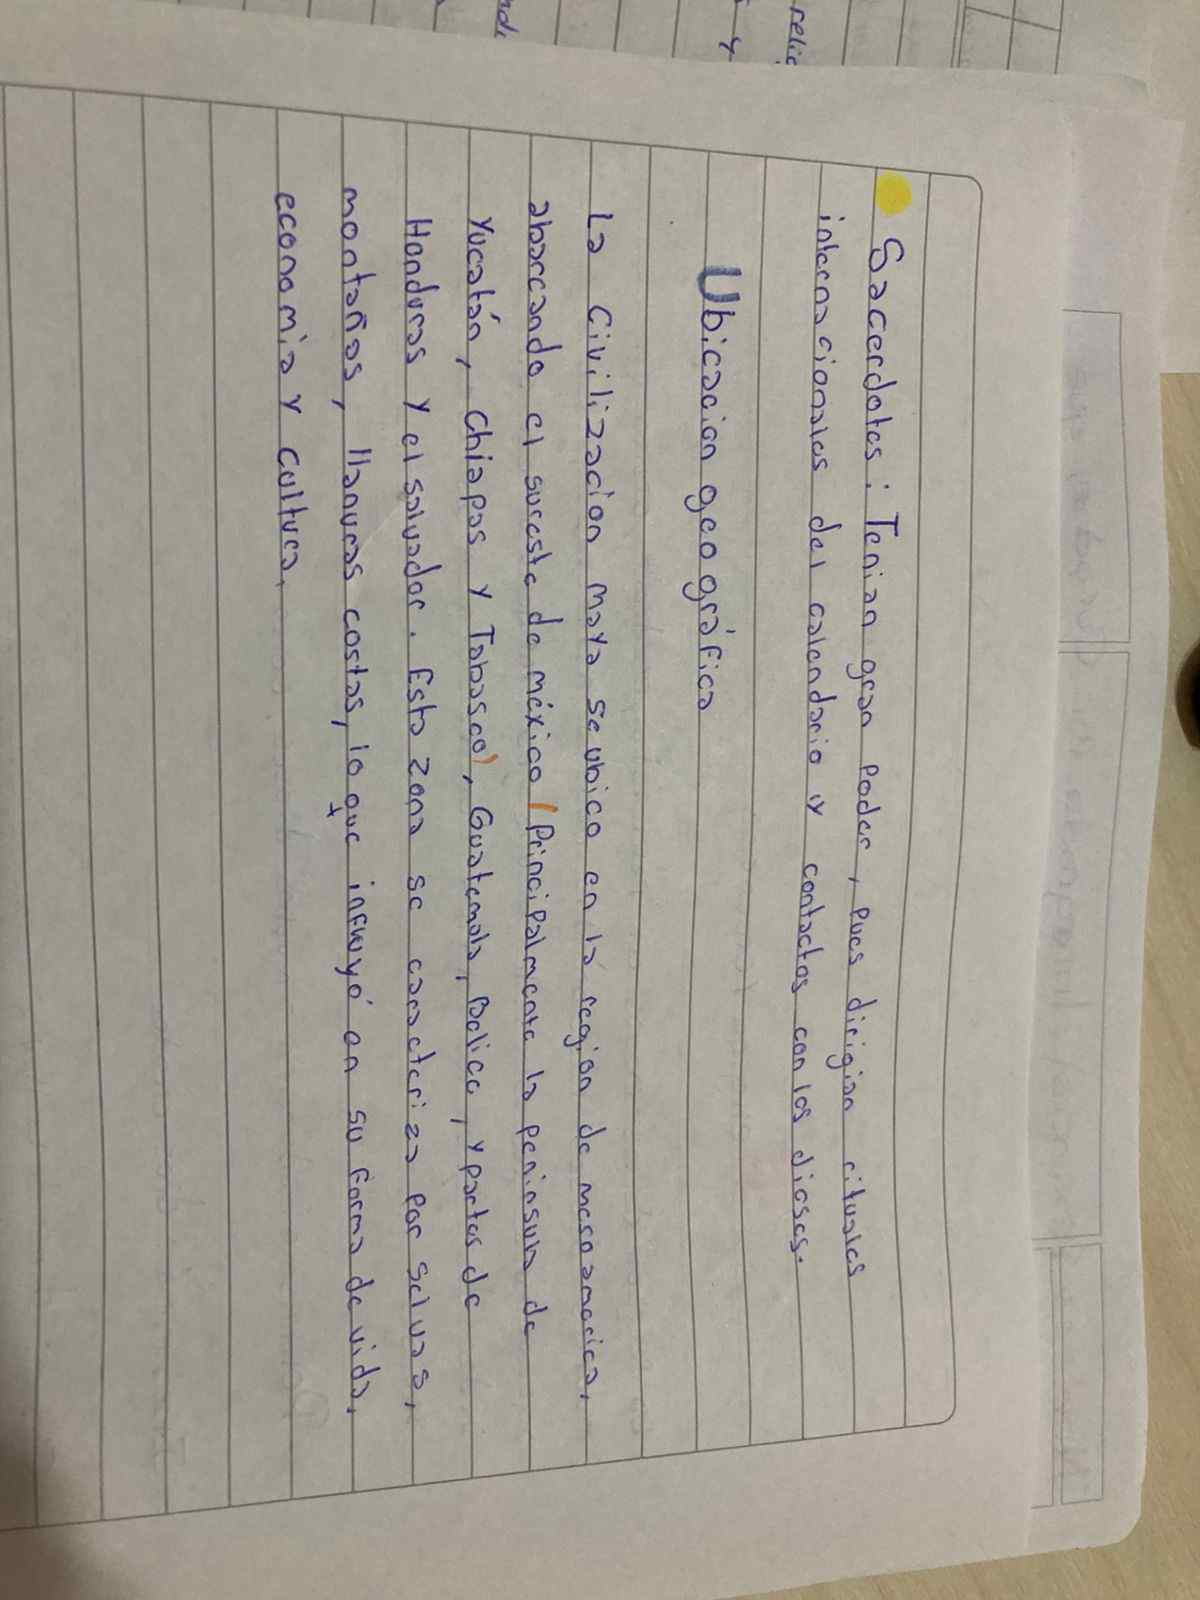 Sacerdotes: Tenian gran Poder, pues dirigian rituales
internacionales del calendario y contactos con los dioses.
Ubicacion geográfica
La Civilizacion maya se ubico en la region de mesoamerica,
abarcando el sureste de méxico (Principalmente la peninsula de
Yucatán, Chiapas y Tabasco), Guatemala, Belice, y partes de
Honduras y el salvador. Esta zona se caracteriza por Selvas,
montañas, llanuras costas, lo que influyó en su Forma de vida,
economia y cultura.